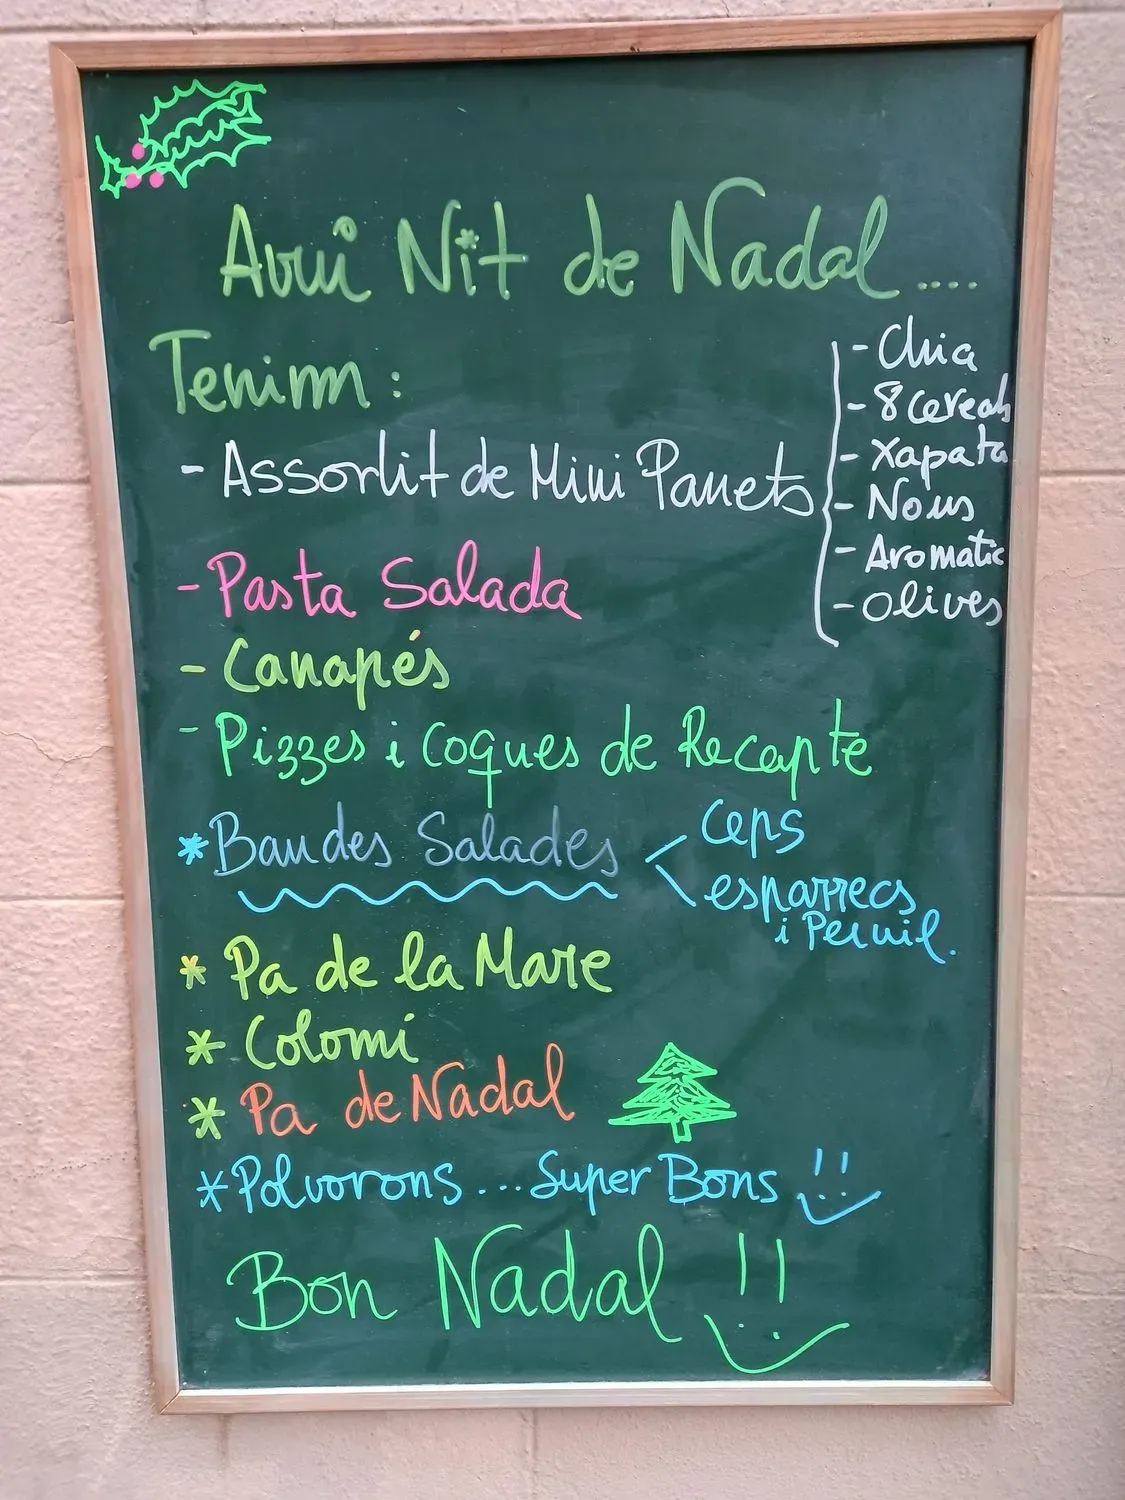 Avui Nit de Nadal.....
Tenim:
- Assortit de Mini Panets
- Chia
- 8 cereals
- Xapata
- Nous
- Aromatic
- Olives
- Pasta Salada
- Canapés
- Pizzes i Coques de Recapte
* Bandes Salades
Ceps
esparrecs
i Pernil.
* Pa de la Mare
* Colomí
* Pa de Nadal
* Polvorons... Super Bons !!
Bon Nadal !!